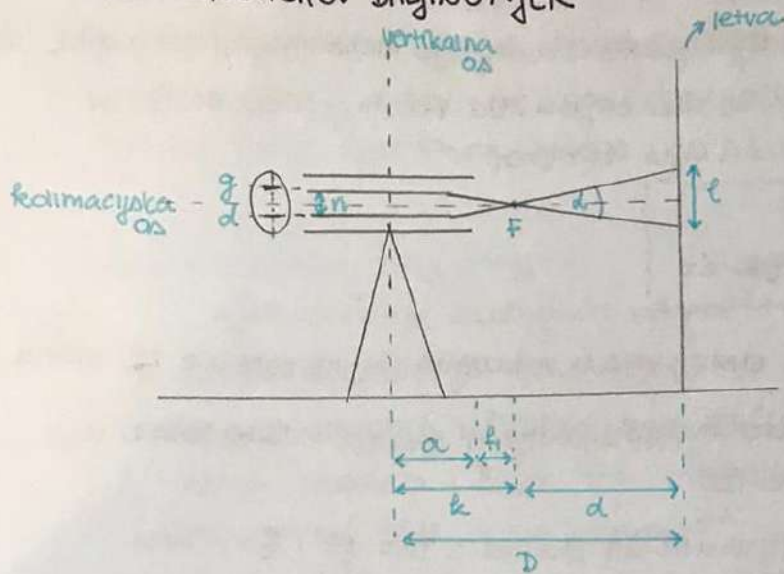 vertikalna
os
letva
g
d
n
kolimacijska
os
F
α
l
a
f₁
k
d
D